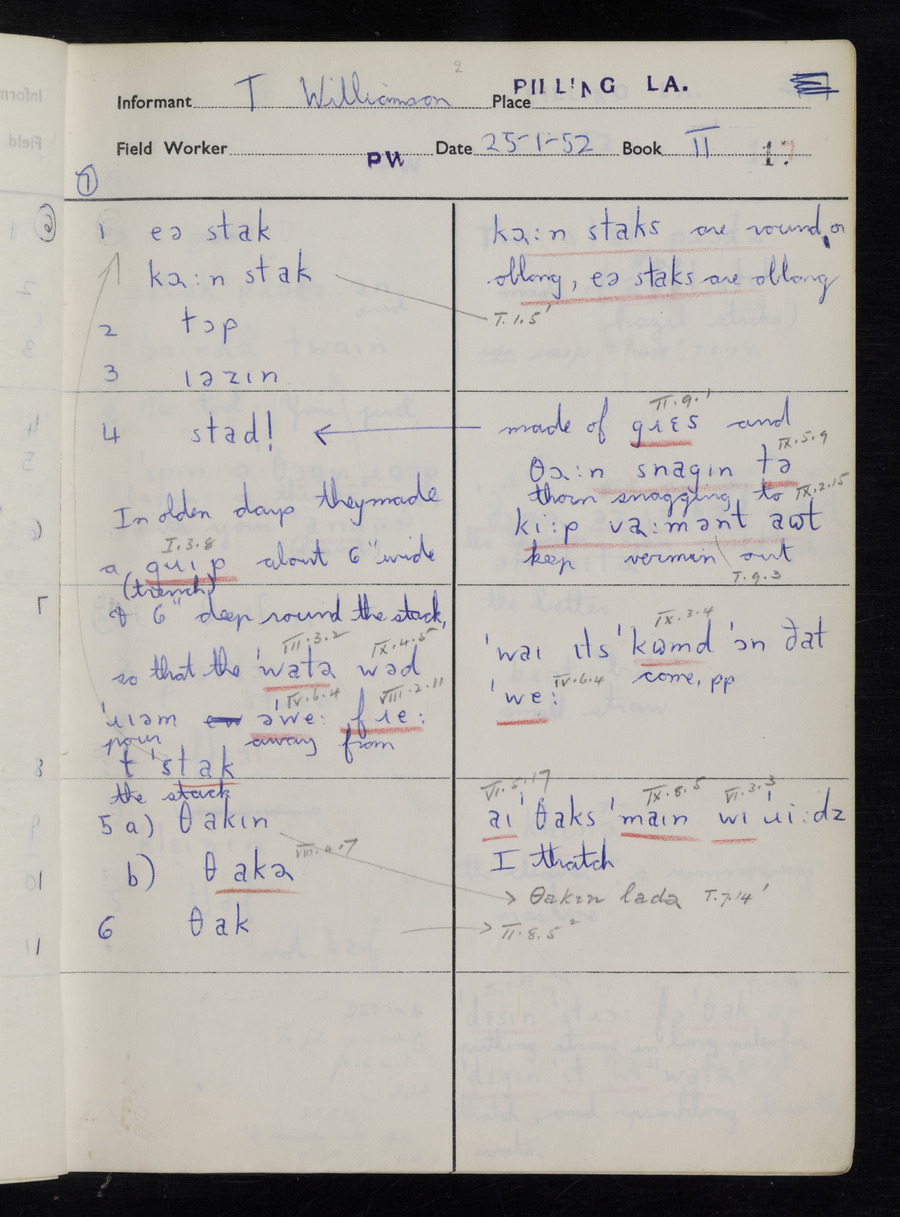 2
Informant T Williamson Place PILLING LA.
Field Worker PW Date 25-1-52 Book II 17
7
1 eə stak
kɔ:n stak
2 tɔp
3 ɹəzɪn
4 stad!
In olden days they made
I.3.8
a gɹɪp about 6" wide
(trench)
& 6" deep round the stack,
VII.3.2 IX.4.5
so that the 'watə wəd
IV.6.4 VIII.2.11
ə'we: fɹe:
pour away from
t 'stak
the stack
5 a) θakɪn
VIII.4.7
b) θakə
6 θak
kɔ:n staks are round, or
oblong, eə staks are oblong
I.1.5'
II.9.1
made of gɹɛs and
IX.5.9
θɔ:n snagɪn tə
thorn snagging to IX.2.15
ki:p va:mənt aʊt
keep vermin out
I.9.3
IX.3.4
'waɪ ɪts 'kʊmd 'ɔn ðat
IV.6.4 come, pp
'we:
VI.5.17 IX.8.5 VI.3.3
aɪ 'θaks 'maɪn wɪ 'ɹi:dz
I thatch
θakɪn ladə I.7.14'
II.8.5²